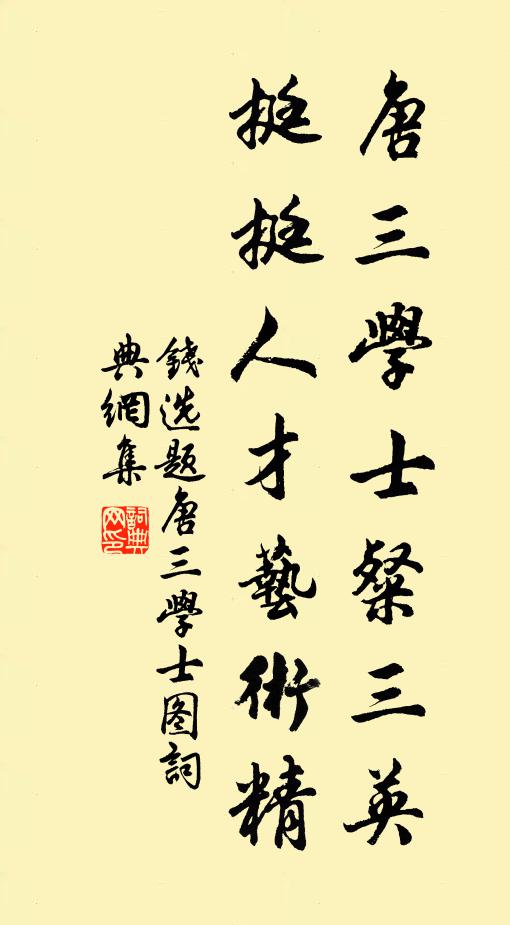 唐三學士粲三英
挺挺人才藝術精
錢选題唐三學士图詞
典網集
詞典
网印